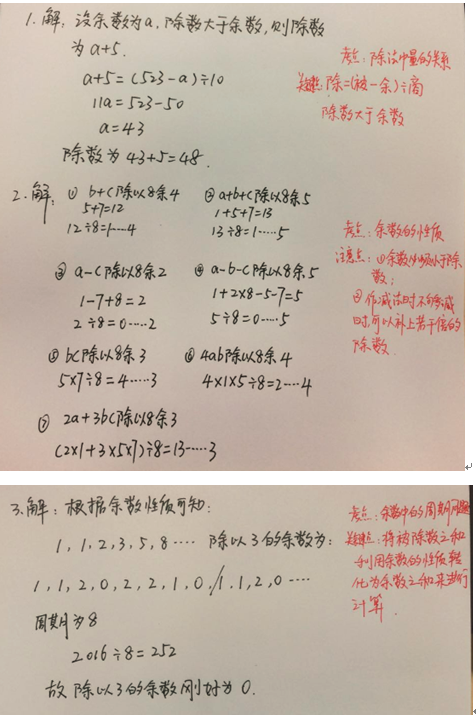 1.解:设余数为a,除数大于余数,则除数
为a+5.
a+5=(523-a)÷10
11a=523-50
a=43
除数为43+5=48.
考点:除法中量的关系
关键:除=(被-余)÷商
除数大于余数
2.解:① b+c除以8余4
5+7=12
12÷8=1……4
② a+b+c除以8余5
1+5+7=13
13÷8=1……5
③ a-c除以8余2
1-7+8=2
2÷8=0……2
④ a-b-c除以8余5
1+2×8-5-7=5
5÷8=0……5
⑤ bc除以8余3
5×7÷8=4……3
⑥ 4ab除以8余4
4×1×5÷8=2……4
⑦ 2a+3bc除以8余3
(2×1+3×5×7)÷8=13……3
考点:余数的性质
注意点:①余数必须小于除
数;
②作减法时不够减
时,可以补上若干倍的
除数.
3.解:根据余数性质可知:
1,1,2,3,5,8…… 除以3的余数为:
1,1,2,0,2,2,1,0,/1,1,2,0……
周期为8
2016÷8=252
故除以3的余数刚好为0.
考点:余数中的周期问题
关键:将被除数之和
利用余数的性质转
化为余数之和来进行
计算.